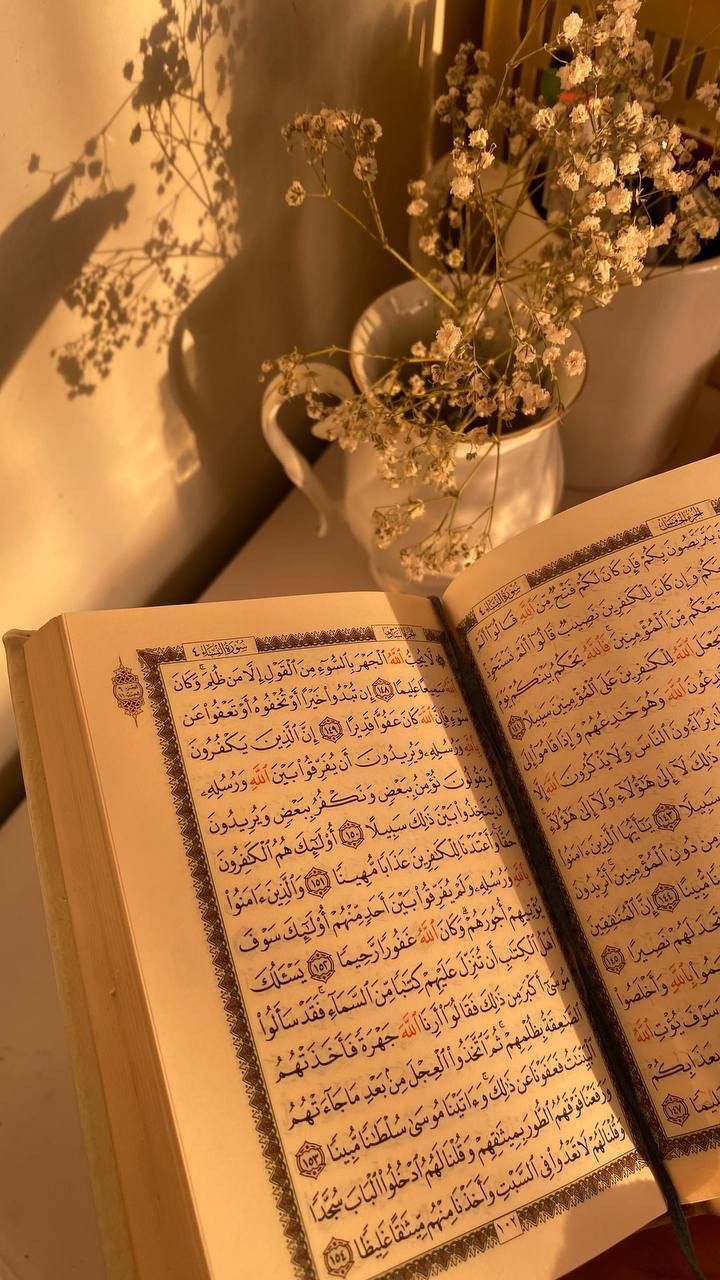 الجزء الخامس سُورَةُ النِّسَاءِ ٤
يَتَرَبَّصُونَ بِكُمْ فَإِن كَانَ لَكُمْ فَتْحٌ مِّنَ ٱللَّهِ قَالُوٓا۟ أَلَمْ
وَإِن كَانَ لِلْكَٰفِرِينَ نَصِيبٌ قَالُوٓا۟ أَلَمْ نَسْتَحْوِذْ
مِّنَ ٱلْمُؤْمِنِينَ فَٱللَّهُ يَحْكُمُ بَيْنَكُمْ يَوْمَ
ٱللَّهُ لِلْكَٰفِرِينَ عَلَى ٱلْمُؤْمِنِينَ سَبِيلًا ١٤١
ٱللَّهَ وَهُوَ خَٰدِعُهُمْ وَإِذَا قَامُوٓا۟ إِلَى
يُرَآءُونَ ٱلنَّاسَ وَلَا يَذْكُرُونَ ٱللَّهَ إِلَّا
ذَٰلِكَ لَآ إِلَىٰ هَٰٓؤُلَآءِ وَلَآ إِلَىٰ هَٰٓؤُلَآءِ
سَبِيلًا ١٤٣ يَٰٓأَيُّهَا ٱلَّذِينَ ءَامَنُوا۟
مِن دُونِ ٱلْمُؤْمِنِينَ أَتُرِيدُونَ
مُّبِينًا ١٤٤ إِنَّ ٱلْمُنَٰفِقِينَ
لَهُمْ نَصِيرًا ١٤٥
بِٱللَّهِ وَأَخْلَصُوا۟
سَوْفَ يُؤْتِ ٱللَّهُ
بِعَذَابِكُمْ
١٤٧
سُورَةُ النِّسَاءِ ٤
لَّا يُحِبُّ ٱللَّهُ ٱلْجَهْرَ بِٱلسُّوٓءِ مِنَ ٱلْقَوْلِ إِلَّا مَن ظُلِمَ وَكَانَ
ٱللَّهُ سَمِيعًا عَلِيمًا ١٤٨ إِن تُبْدُوا۟ خَيْرًا أَوْ تُخْفُوهُ أَوْ تَعْفُوا۟ عَن
سُوٓءٍ فَإِنَّ ٱللَّهَ كَانَ عَفُوًّا قَدِيرًا ١٤٩ إِنَّ ٱلَّذِينَ يَكْفُرُونَ
بِٱللَّهِ وَرُسُلِهِۦ وَيُرِيدُونَ أَن يُفَرِّقُوا۟ بَيْنَ ٱللَّهِ وَرُسُلِهِۦ
وَيَقُولُونَ نُؤْمِنُ بِبَعْضٍ وَنَكْفُرُ بِبَعْضٍ وَيُرِيدُونَ
أَن يَتَّخِذُوا۟ بَيْنَ ذَٰلِكَ سَبِيلًا ١٥٠ أُو۟لَٰٓئِكَ هُمُ ٱلْكَٰفِرُونَ
حَقًّا وَأَعْتَدْنَا لِلْكَٰفِرِينَ عَذَابًا مُّهِينًا ١٥١ وَٱلَّذِينَ ءَامَنُوا۟
بِٱللَّهِ وَرُسُلِهِۦ وَلَمْ يُفَرِّقُوا۟ بَيْنَ أَحَدٍ مِّنْهُمْ أُو۟لَٰٓئِكَ سَوْفَ
يُؤْتِيهِمْ أُجُورَهُمْ وَكَانَ ٱللَّهُ غَفُورًا رَّحِيمًا ١٥٢ يَسْـَٔلُكَ
أَهْلُ ٱلْكِتَٰبِ أَن تُنَزِّلَ عَلَيْهِمْ كِتَٰبًا مِّنَ ٱلسَّمَآءِ فَقَدْ سَأَلُوا۟
مُوسَىٰٓ أَكْبَرَ مِن ذَٰلِكَ فَقَالُوٓا۟ أَرِنَا ٱللَّهَ جَهْرَةً فَأَخَذَتْهُمُ
ٱلصَّٰعِقَةُ بِظُلْمِهِمْ ثُمَّ ٱتَّخَذُوا۟ ٱلْعِجْلَ مِنۢ بَعْدِ مَا جَآءَتْهُمُ
ٱلْبَيِّنَٰتُ فَعَفَوْنَا عَن ذَٰلِكَ وَءَاتَيْنَا مُوسَىٰ سُلْطَٰنًا مُّبِينًا ١٥٣
وَرَفَعْنَا فَوْقَهُمُ ٱلطُّورَ بِمِيثَٰقِهِمْ وَقُلْنَا لَهُمُ ٱدْخُلُوا۟ ٱلْبَابَ سُجَّدًا
وَقُلْنَا لَهُمْ لَا تَعْدُوا۟ فِى ٱلسَّبْتِ وَأَخَذْنَا مِنْهُم مِّيثَٰقًا غَلِيظًا ١٥٤
١٠٢